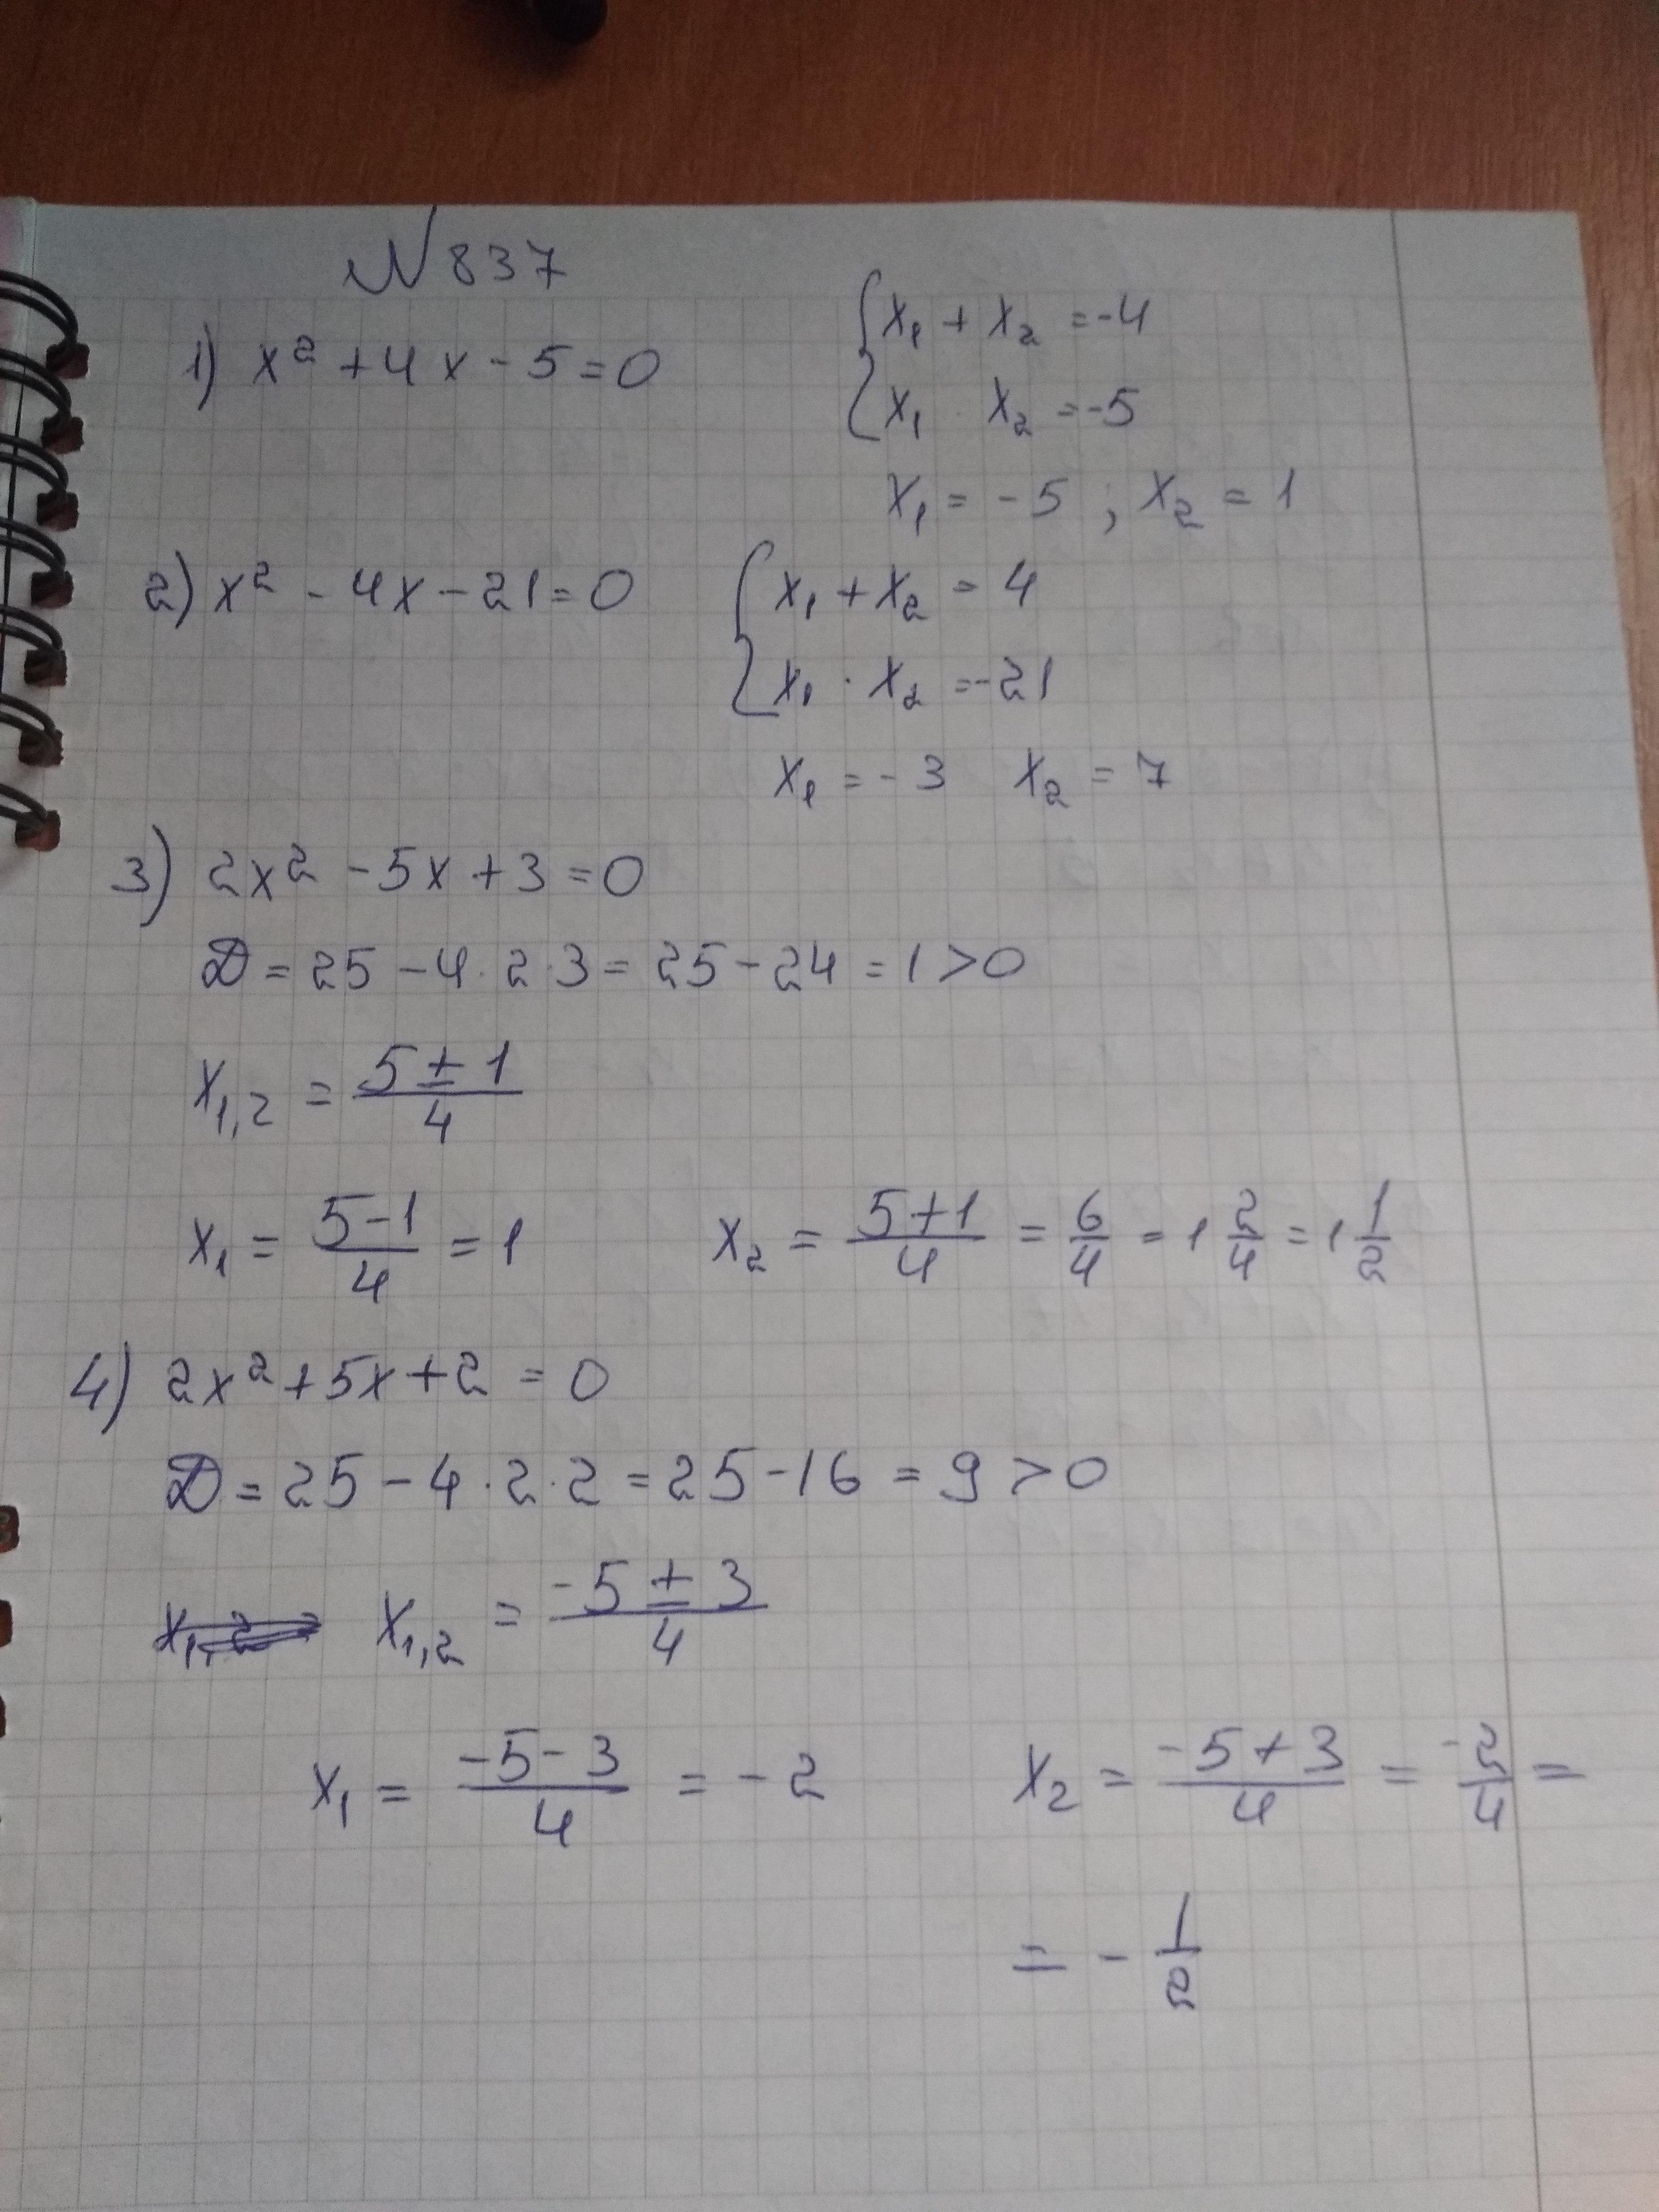 №837
1) x² + 4x - 5 = 0
{ x₁ + x₂ = -4
x₁ · x₂ = -5
x₁ = -5 ; x₂ = 1
2) x² - 4x - 21 = 0
{ x₁ + x₂ = 4
x₁ · x₂ = -21
x₁ = -3 x₂ = 7
3) 2x² - 5x + 3 = 0
D = 25 - 4 · 2 · 3 = 25 - 24 = 1 > 0
x₁,₂ = (5 ± 1)/4
x₁ = (5 - 1)/4 = 1 x₂ = (5 + 1)/4 = 6/4 = 1 2/4 = 1 1/2
4) 2x² + 5x + 2 = 0
D = 25 - 4 · 2 · 2 = 25 - 16 = 9 > 0
x₁,₂ x₁,₂ = (-5 ± 3)/4
x₁ = (-5 - 3)/4 = -2 x₂ = (-5 + 3)/4 = -2/4 =
= - 1/2